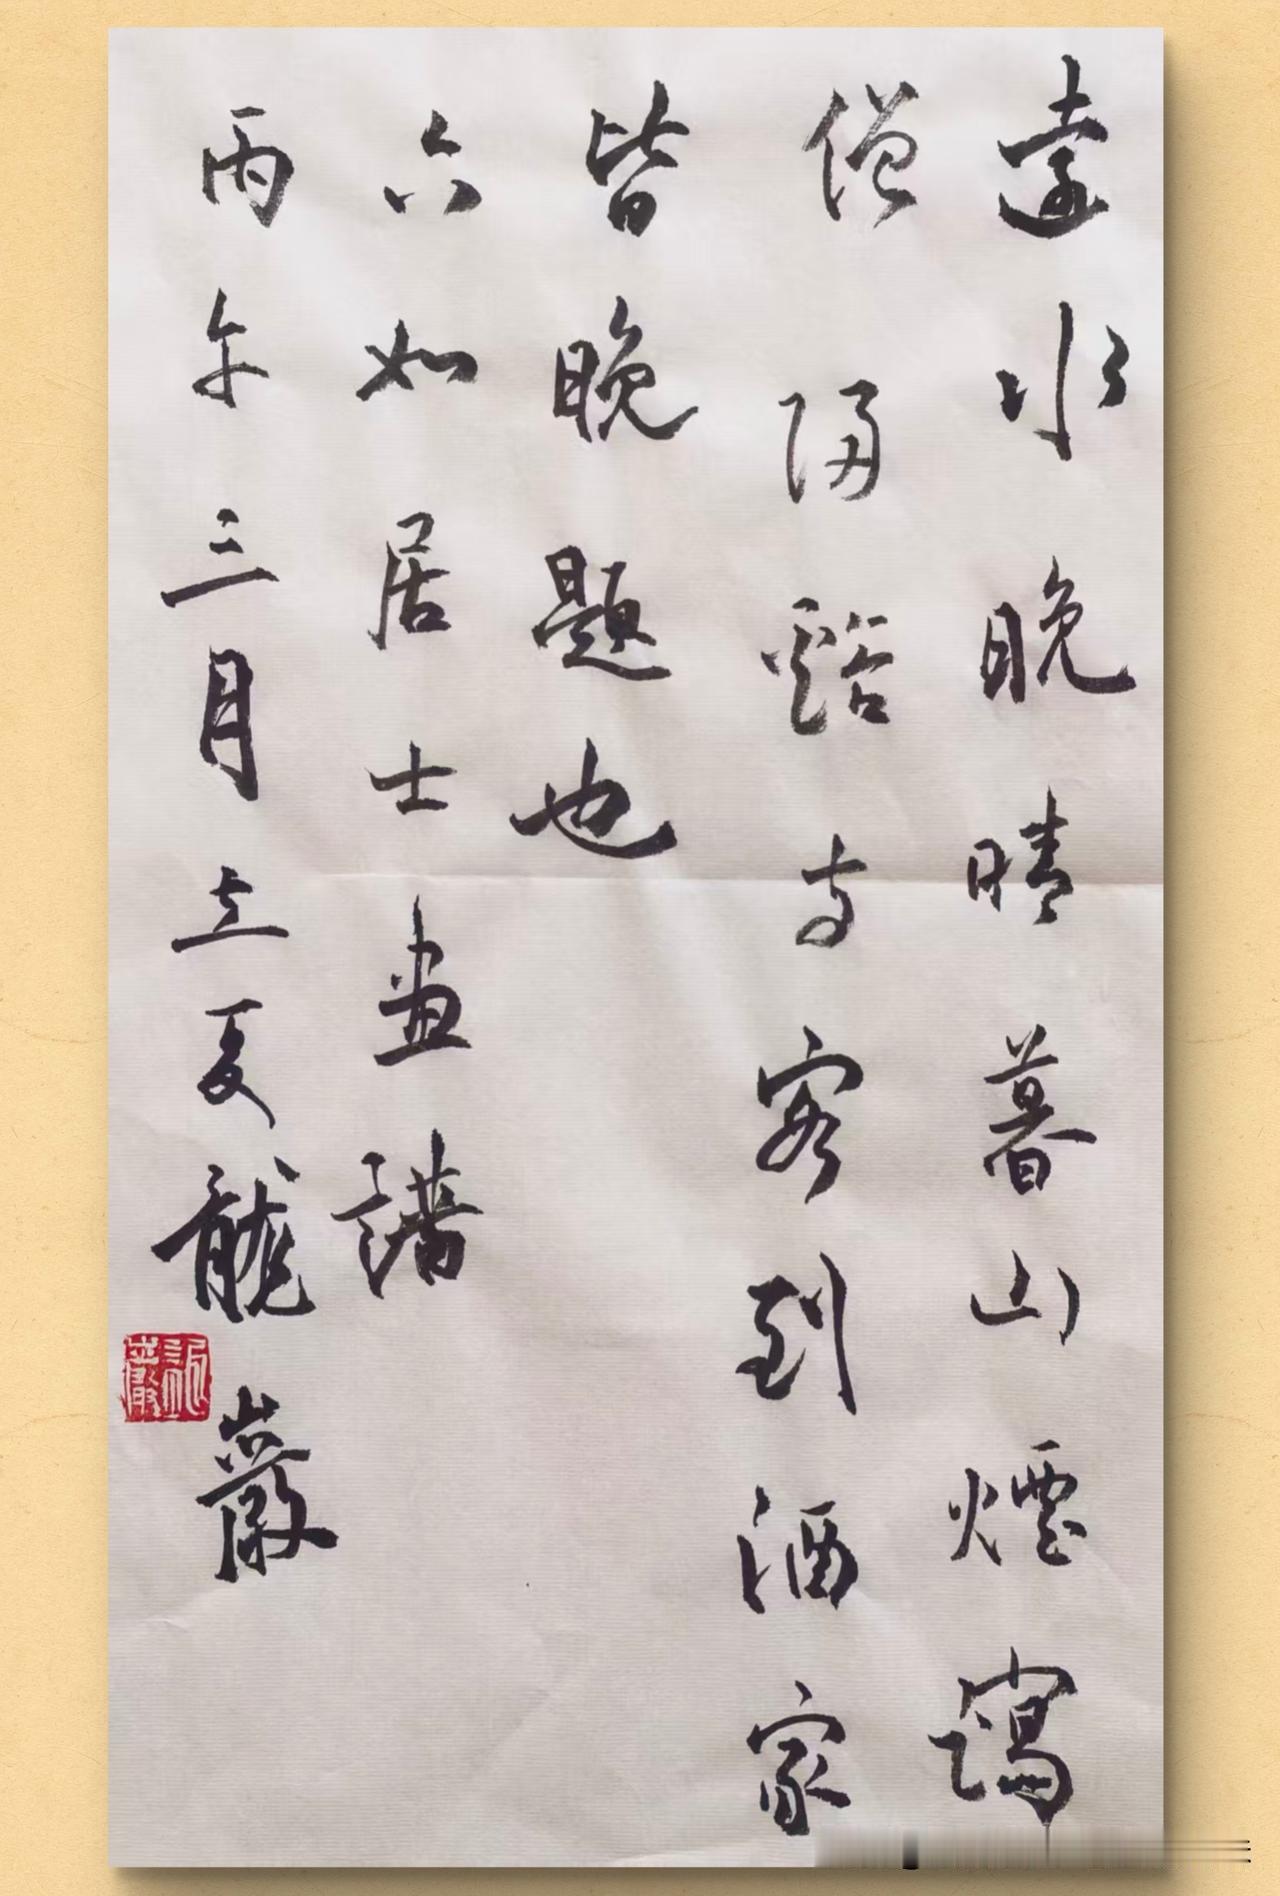 遠水晚晴暮山煙靄
僧歸谿寺客到酒家
皆晚題也
六如居士畫譜
丙午三月立夏龍巖